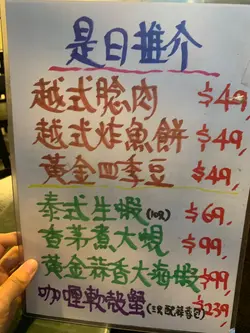 是日推介
越式腍肉 $49
越式炸魚餅 $49,
黃金四季豆 $49,
泰式生蝦 $69,
香茅煮大蜆 $99,
黃金蒜香大海蝦 $99
咖喱軟殼蟹 $239,